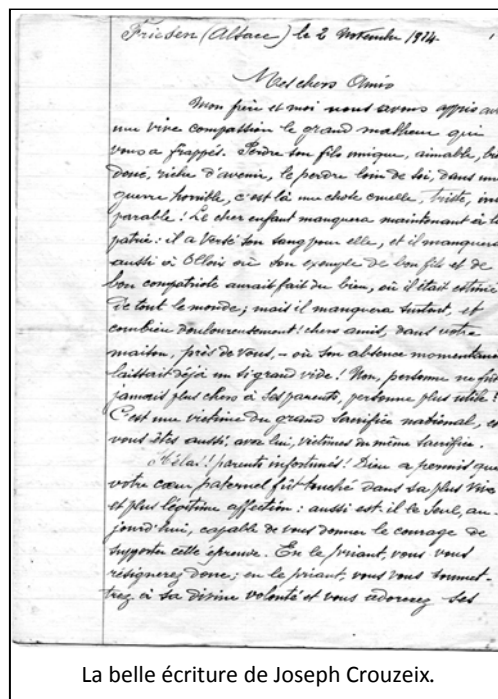 Friesen (Alsace) le 2 Novembre 1914.
Mes chers Amis
Mon frère et moi nous avons appris avec
une vive compassion le grand malheur qui
vous a frappés. Perdre son fils unique, aimable, bien
doué, riche d'avenir, le perdre loin de soi, dans une
guerre horrible, c'est là une chose cruelle, triste, irré
parable ! Le cher enfant manquera maintenant à la
patrie : il a versé son sang pour elle, et il manquera
aussi à Olloix où son exemple de bon fils et de
bon compatriote aurait fait du bien, où il était estimé
de tout le monde ; mais il manquera surtout, et
combien douloureusement ! chers amis, dans votre
maison, près de vous, – où son absence momentanée
laissait déjà un si grand vide ! Non, personne ne fut
jamais plus chers à ses parents, personne plus utile !
C'est une victime du grand sacrifice national, et
vous êtes aussi, avec lui, victimes du même sacrifice.
Hélas ! parents infortunés ! Dieu a permis que
votre cœur paternel fût touché dans sa plus vive
et plus légitime affection : aussi est-il le seul, au-
jourd'hui, capable de vous donner le courage de
supporter cette épreuve. En le priant, vous vous
résignerez donc ; en le priant, vous vous soumet-
trez à sa divine volonté et vous adorerez ses
La belle écriture de Joseph Crouzeix.